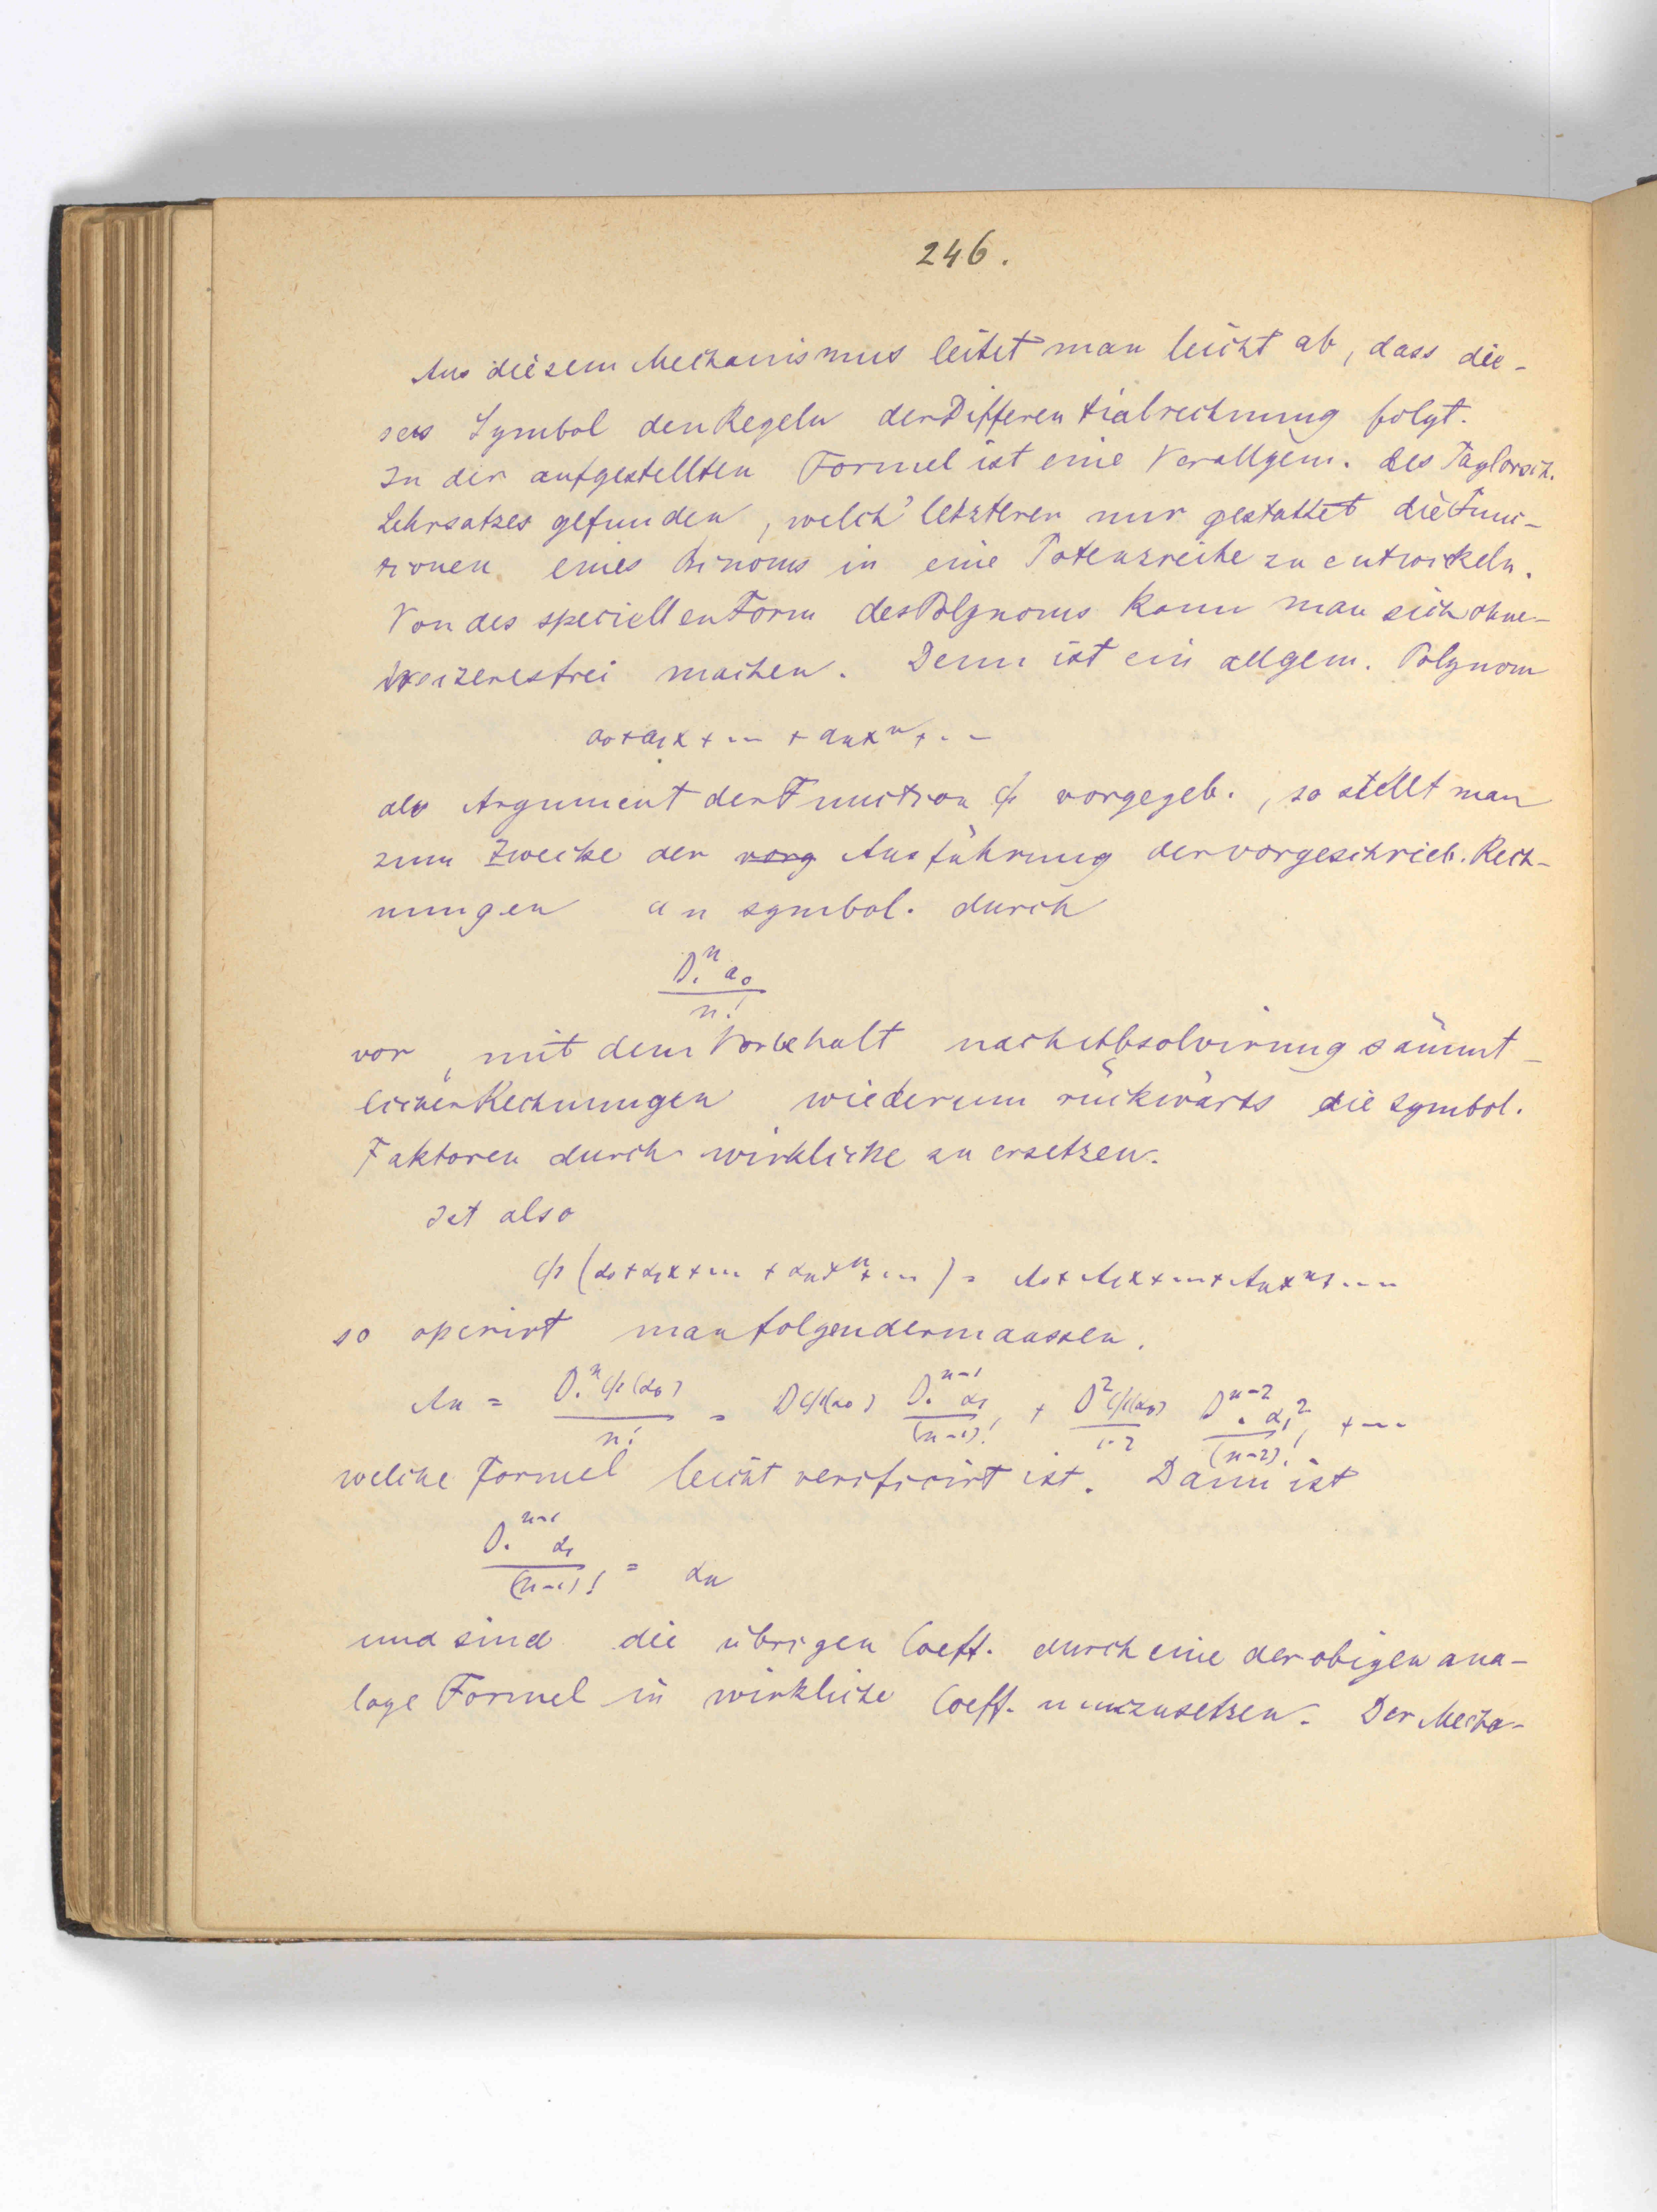 246.
Aus diesem Mechanismus leitet man leicht ab, dass die-
ses Symbol den Regeln der Differentialrechnung folgt.
In der aufgestellten Formel ist eine Verallgem. des Taylorsch.
Lehrsatzes gefunden, welch' letzterer nur gestattet die Func-
tionen eines Binoms in eine Potenzreihe zu entwickeln.
Von des speciellen Form des Polynoms kann man sich ohne-
weiteres frei machen. Denn ist ein allgem. Polynom
a₀+a₁x+ ... + aₙxⁿ+...
als Argument der Function φ vorgegeb., so stellt man
zum Zwecke der vorg Ausführung der vorgeschrieb. Rech-
nungen an symbol. durch
D.ⁿa₀ / n!
vor, mit dem Vorbehalt nach Absolvirung sämmt-
licher Rechnungen wiederum rückwärts die symbol.
Faktoren durch wirkliche zu ersetzen.
Ist also
φ(α₀+α₁x+...+αₙxⁿ+...) = A₀+A₁x+...+Aₙxⁿ+....
so operirt man folgendermaassen.
Aₙ = D.ⁿφ(α₀) / n! = Dφ(α₀) D.ⁿ⁻¹α₁ / (n-1)! + D²φ(α₀) / 1·2 D.ⁿ⁻²α₁² / (n-2)! + ...
welche Formel leicht verificirt ist. Dann ist
D.ⁿ⁻¹α₁ / (n-1)! = αₙ
und sind die übrigen Coeff. durch eine der obigen ana-
loge Formel in wirkliche Coeff. umzusetzen. Der Mecha-